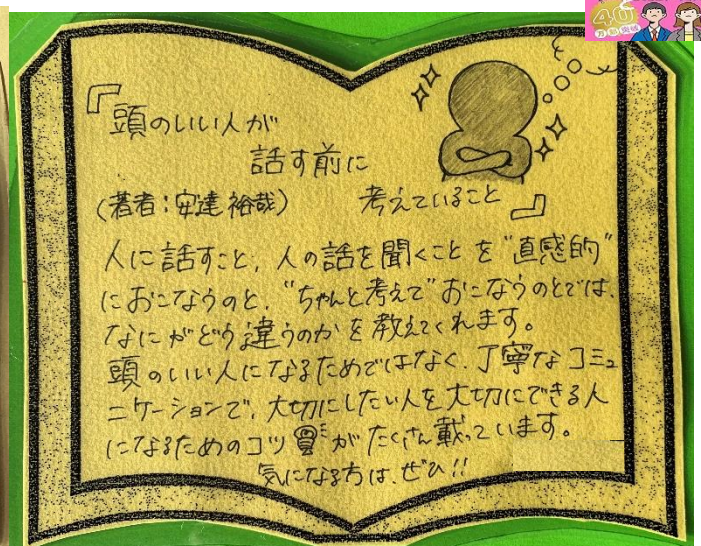 『頭のいい人が
話す前に
考えていること』
(著者:安達 裕哉)
人に話すこと、人の話を聞くことを"直感的"
におこなうのと、"ちゃんと考えて"おこなうのとでは、
なにがどう違うのかを教えてくれます。
頭のいい人になるためではなく、丁寧なコミュ
ニケーションで、大切にしたい人を大切にできる人
になるためのコツがたくさん載っています。
気になる方は、ぜひ!!